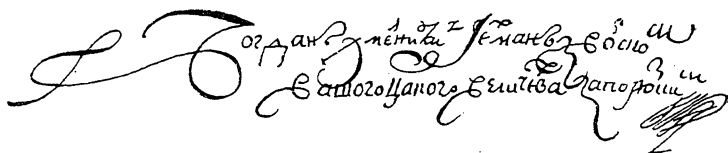 Богдан Хмелницкий Гетман з Войском
Вашого Царского Величества Запорозким